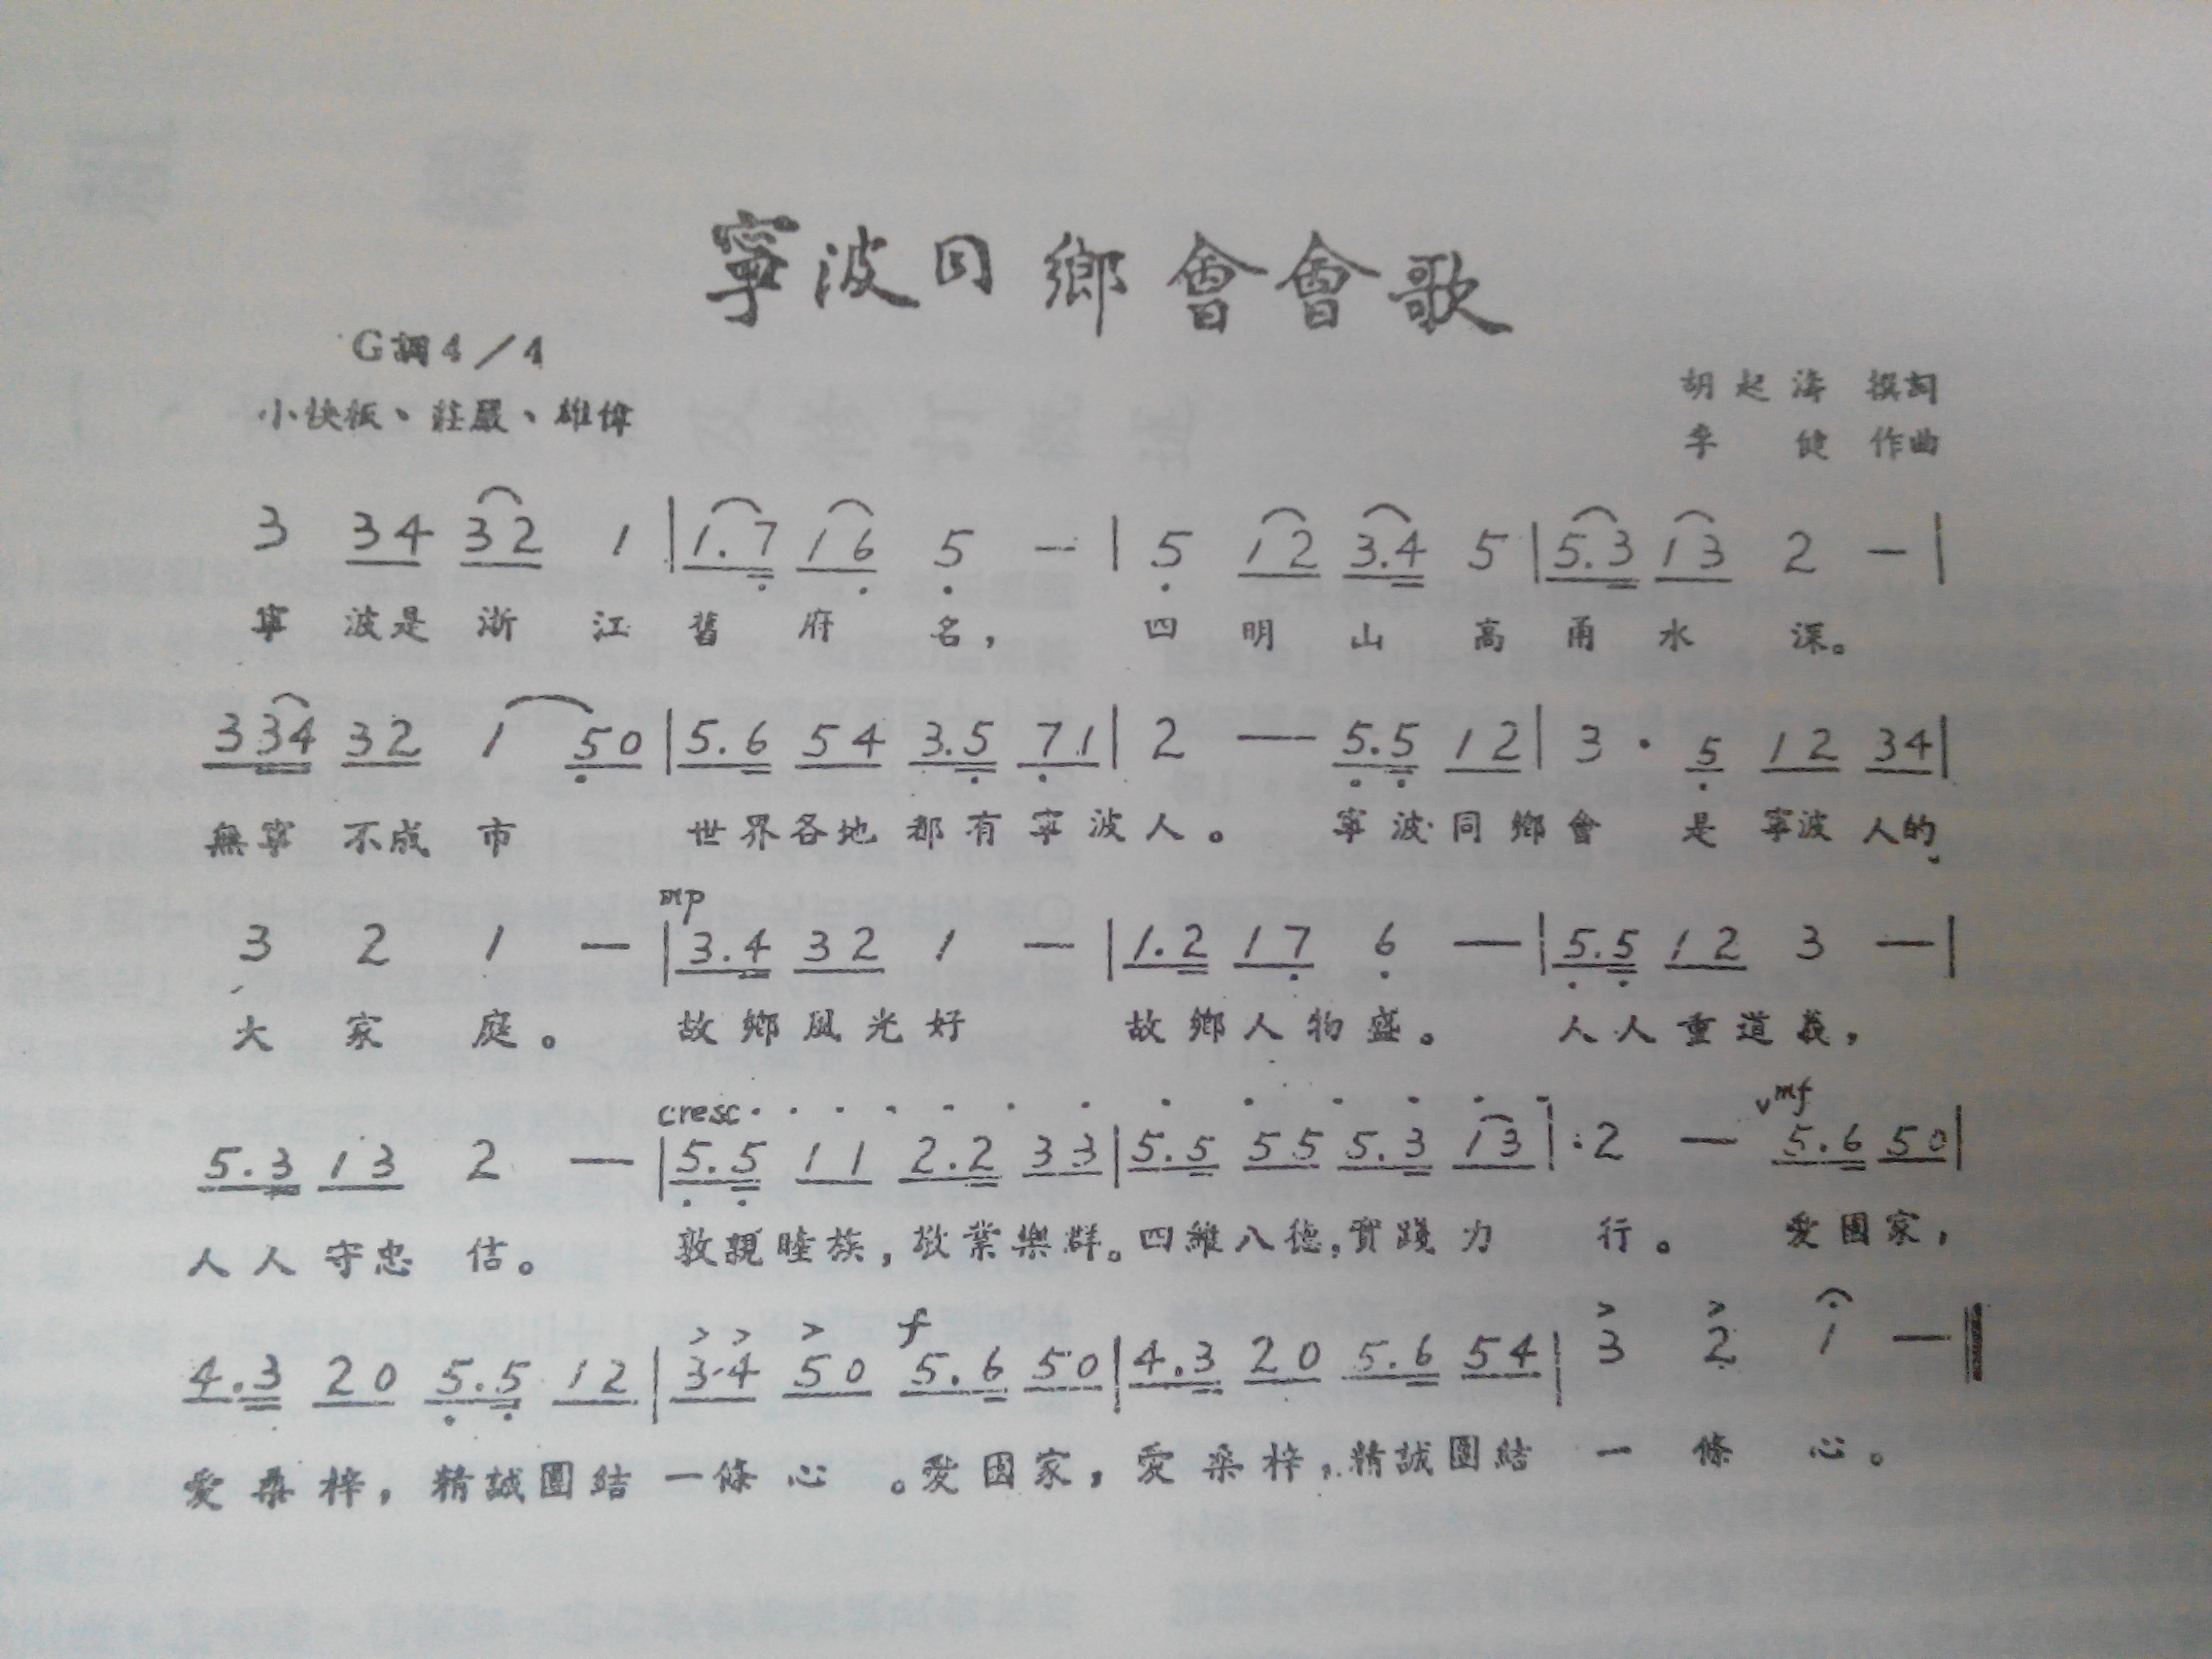 寧波同鄉會會歌
G調4／4
小快板、莊嚴、雄偉
胡起濤 撰詞
李 健 作曲
3 34 32 1 | 1.7 16 5 — | 5 12 3.4 5 | 5.3 13 2 — |
寧 波是 浙 江 舊 府 名， 四 明 山 高 甬 水 深。
334 32 1 50 | 5.6 54 3.5 71 | 2 — 5.5 12 | 3 · 5 12 34 |
無寧 不成 市 世界各地 都有寧波人。 寧波同鄉會 是 寧波 人的
mp
3 2 1 — | 3.4 32 1 — | 1.2 17 6 — | 5.5 12 3 — |
大 家 庭。 故鄉風光好 故鄉人物盛。 人人重道義，
cresc. mf
5.3 13 2 — | 5.5 11 2.2 33 | 5.5 55 5.3 13 | 2 — 5.6 50 |
人人守忠信。 敦親睦族，敬業樂群。四維八德，實踐力 行。 愛國家，
f
4.3 20 5.5 12 | 3.4 50 5.6 50 | 4.3 20 5.6 54 | 3 2 1 —
愛桑梓，精誠團結 一條心。愛國家，愛桑梓，精誠團結 一 條 心。